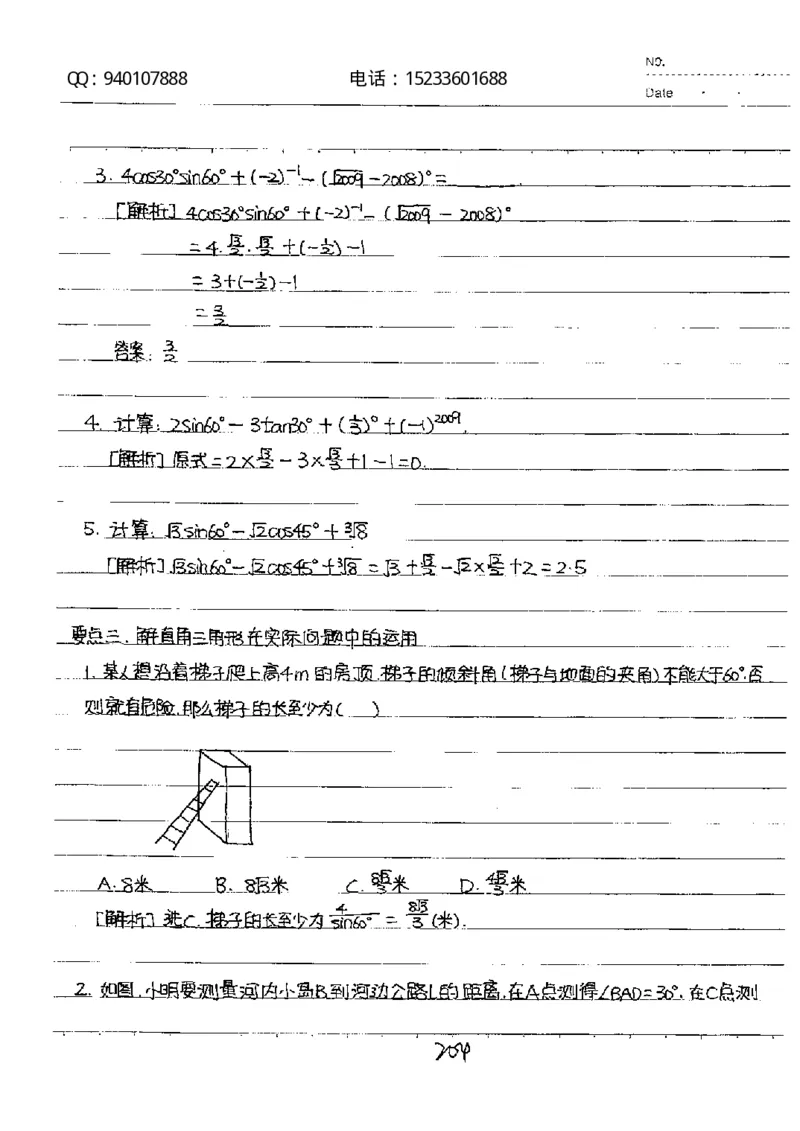 QQ：940107888 电话：15233601688 NO.
Date
3. 4cos30°sin60°+(-2)⁻¹-(√2009-2008)°=
[解析] 4cos30°sin60°+(-2)⁻¹-(√2009-2008)°
=4·√3/2·√3/2+(-1/2)-1
=3+(-1/2)-1
=3/2
答案：3/2
4. 计算：2sin60°-3tan30°+(1/3)°+(-1)²⁰⁰⁹.
[解析] 原式=2×√3/2-3×√3/3+1-1=0.
5. 计算：√3sin60°-√2cos45°+³√8
[解析] √3sin60°-√2cos45°+³√8=√3+√3/2-√2×√2/2+2=2.5
要点三、解直角三角形在实际问题中的运用
1. 某人想沿着梯子爬上高4m的房顶,梯子的倾斜角(梯子与地面的夹角)不能大于60°,否
则就有危险,那么梯子的长至少为( )
A.8米 B. 8√3米 C. 8√3/3米 D. 4√3/3米
[解析] 选C.梯子的长至少为4/sin60°=8√3/3(米).
2. 如图,小明要测量河内小岛B到河边公路L的距离,在A点测得∠BAD=30°,在C点测
204